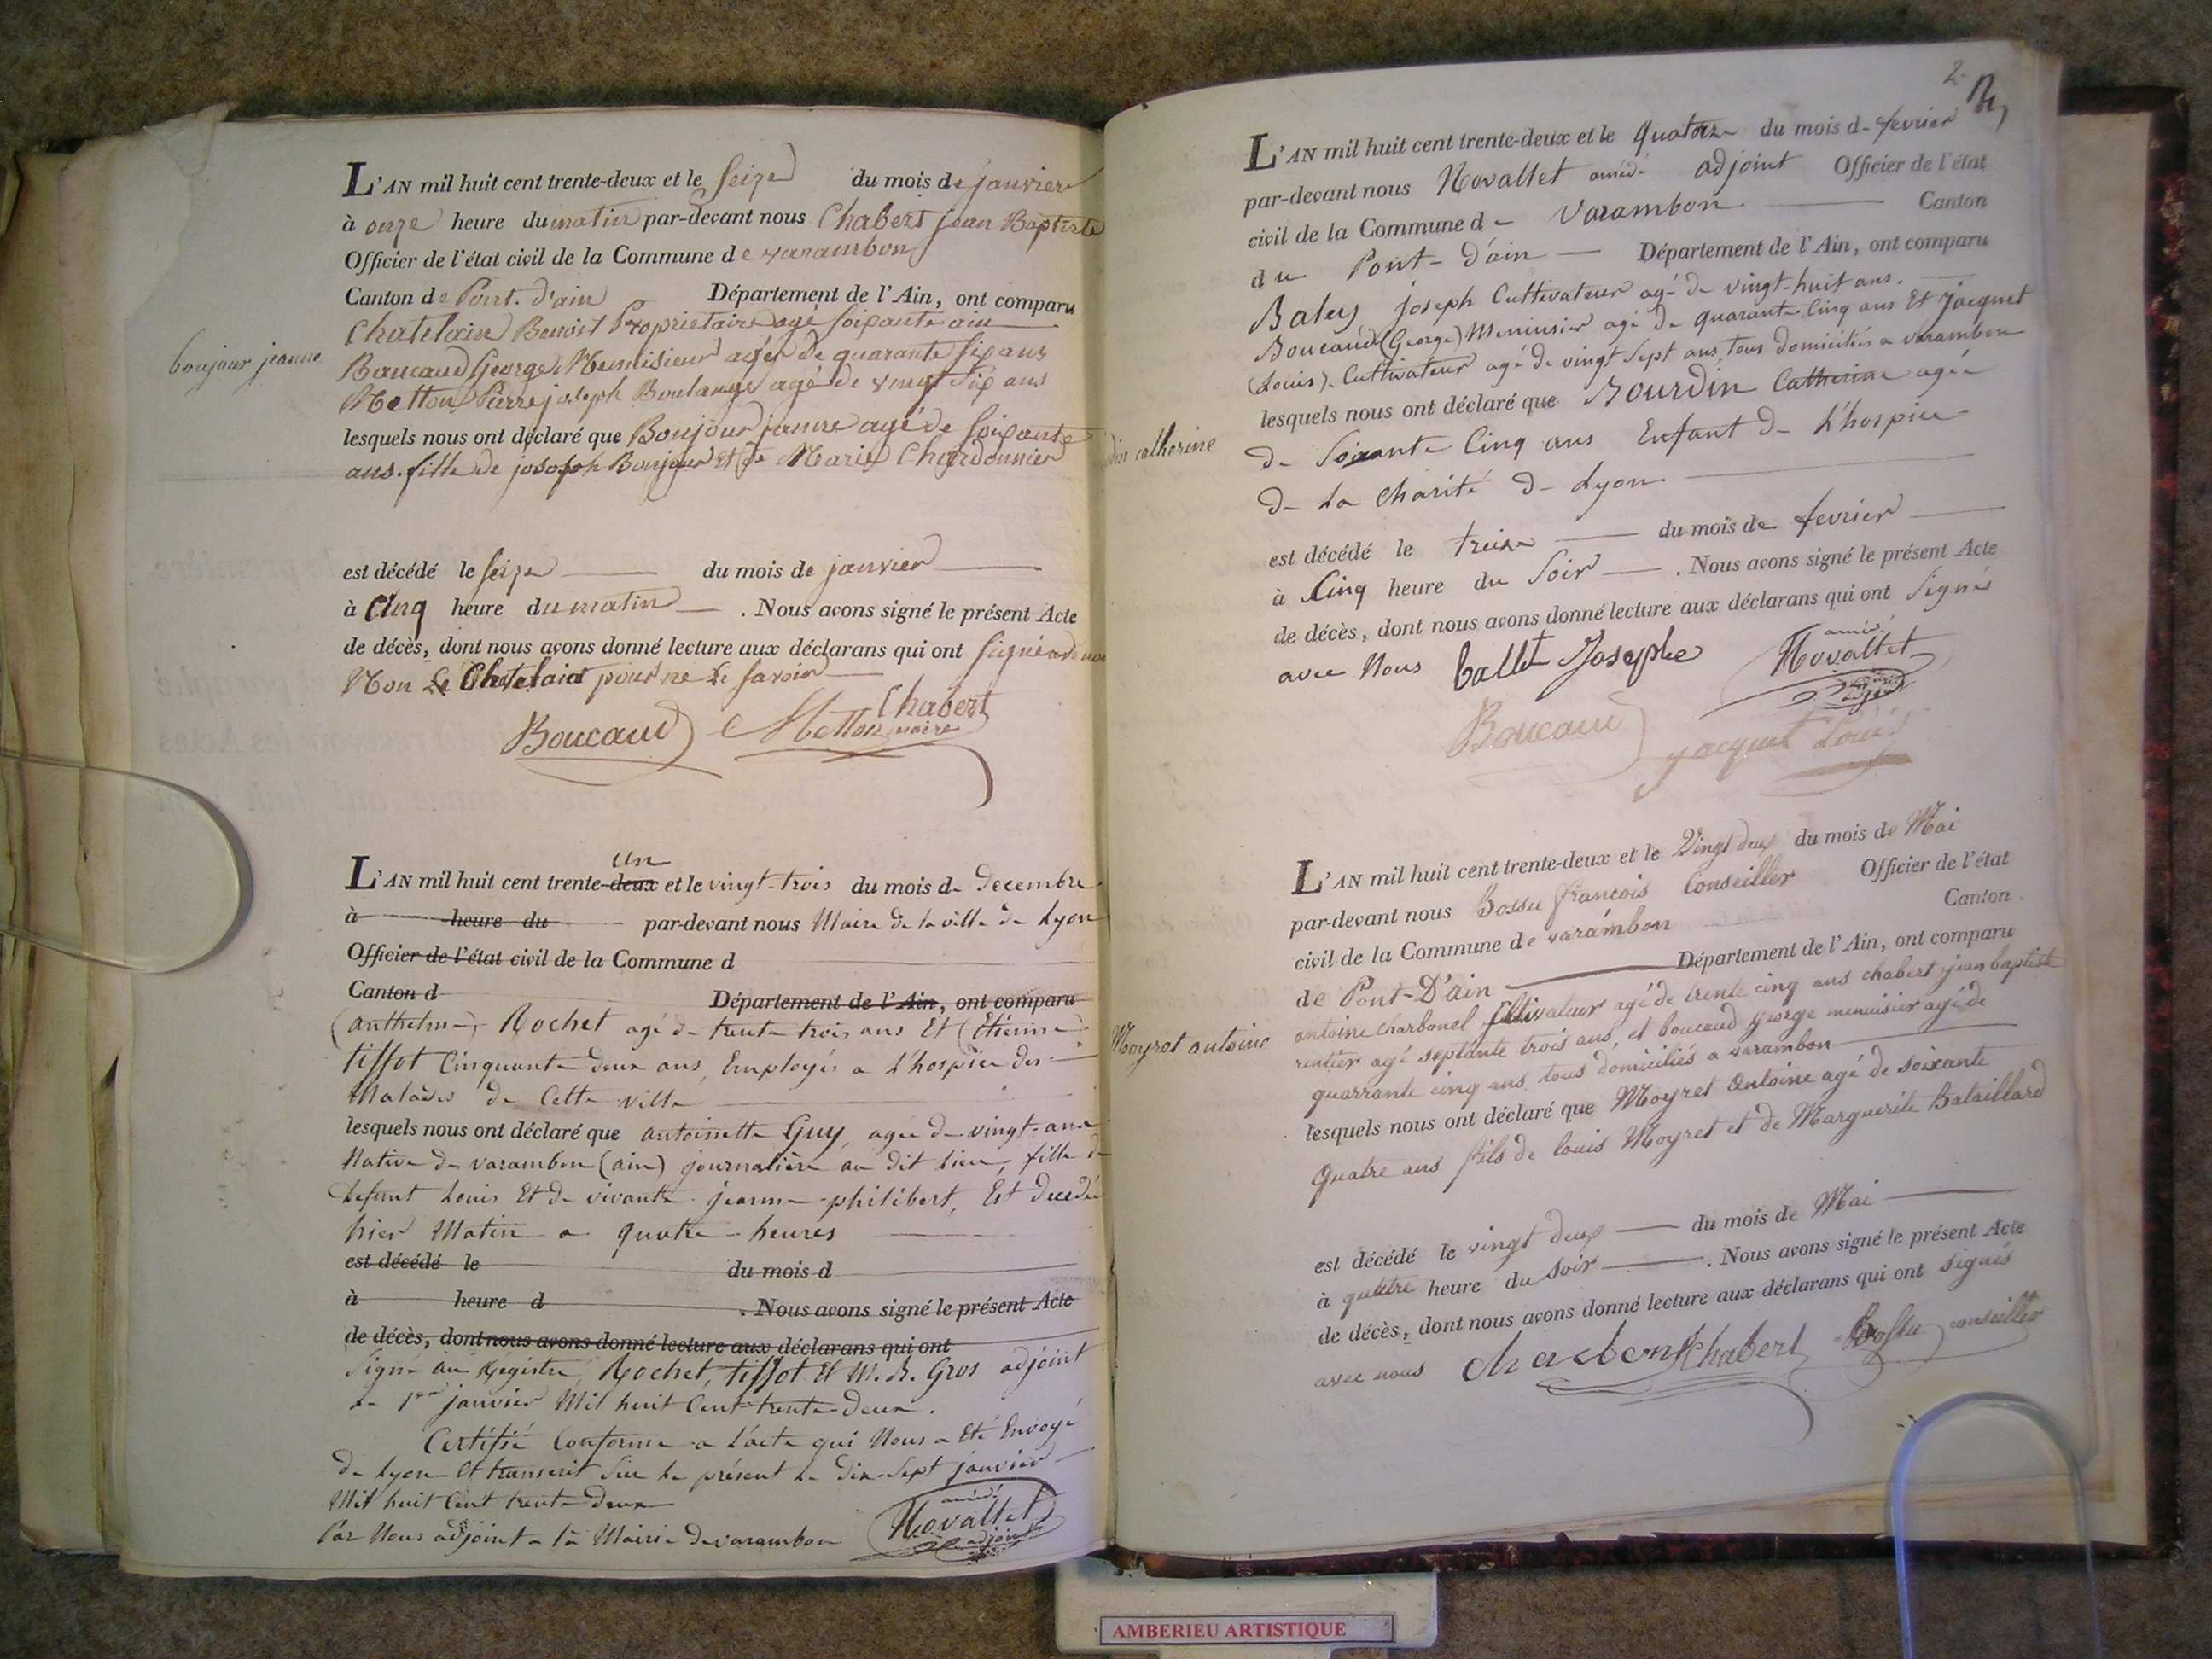 L'AN mil huit cent trente-deux et le seize du mois de janvier
à onze heure du matin par-devant nous Chabert jean Baptiste
Officier de l'état civil de la Commune de varambon
Canton de Pont. d'ain Département de l'Ain, ont comparu
Chatelain Benoist Proprietaire agé soixante ain
Boucaud George Menuisieur agér de quarante six ans
Metton Pierre joseph Boulange agé de vingt six ans
boujour jeanne
lesquels nous ont déclaré que Bonjour janne agé de soixante
ans. fille de joseph Bonjour et de Marie Chardonnier
est décédé le seize du mois de janvier
à Cinq heure du matin . Nous avons signé le présent Acte
de décès, dont nous avons donné lecture aux déclarans qui ont signé
Non Le Chatelaid pour ne Le savoir
Chabert
Boucaud Metton maire
un
L'AN mil huit cent trente-deux et le vingt-trois du mois de Decembre
à heure du par-devant nous Maire de la ville de Lyon
Officier de l'état civil de la Commune d
Canton d Département de l'Ain, ont comparu
(anthelme) Rochet agé de trente trois ans Et (Etienne)
tissot Cinquante deux ans, Employés a L'hospice des
Malades de Cette ville
lesquels nous ont déclaré que antoinette Guy, agee de vingt-ans
Native de varambon (ain) journalière au dit Lieu, fille de
defunt Louis Et de vivante jeanne philibert, Est decedée
hier Matin a quatre heures
est décédé le du mois d
à heure d . Nous avons signé le présent Acte
de décès, dont nous avons donné lecture aux déclarans qui ont
Signé au Registre Rochet, tissot Et M. R. Gros adjoint
Le 1er janvier Mil huit Cent trente-Deux.
Certifié Conforme a L'acte qui Nous a Eté Envoyé
de Lyon Et transcrit Sur Le présent Le Dix-Sept janvier
Mil huit Cent trente Deux
Par Nous adjoint a la Mairie de varambon
amédé
Novallet
adjoint
2
L'AN mil huit cent trente-deux et le quatorze du mois de fevrier
par-devant nous Novallet amédé adjoint Officier de l'état
civil de la Commune de Varambon Canton
du Pont-d'ain Département de l'Ain, ont comparu
Baley joseph Cultivateur agé de vingt-huit ans.
Boucaud (George) Menuisier agé de quarante Cinq ans Et Jacquet
(Louis). Cultivateur agé de vingt Sept ans, tous domiciliés a varambon
lesquels nous ont déclaré que Bourdin Catherine agée
catherine
de Soixante Cinq ans Enfant de L'hospice
de La Charité de Lyon
est décédé le treize du mois de fevrier
à Cinq heure du Soir . Nous avons signé le présent Acte
de décès, dont nous avons donné lecture aux déclarans qui ont Signés
avec Nous Ballet Josephe amédé Novallet
Boucaud jacquet Louis
L'AN mil huit cent trente-deux et le Vingt deux du mois de Mai
par-devant nous Bossu françois Conseiller Officier de l'état
civil de la Commune de varambon Canton
de Pont-D'ain Département de l'Ain, ont comparu
antoine charbonel Cultivateur agé de trente cinq ans chabert jean baptiste
rentier agé septante trois ans, et boucaud george menuisier agé de
Moyret antoine
quarrante cinq ans tous domiciliés a varambon
lesquels nous ont déclaré que Moyret Antoine agé de soixante
quatre ans fils de louis Moyret et de Marguerite Bataillard
est décédé le vingt deux du mois de Mai
à quatre heure du soir . Nous avons signé le présent Acte
de décès, dont nous avons donné lecture aux déclarans qui ont signés
avec nous Chabert Bossu conseiller
AMBERIEU ARTISTIQUE